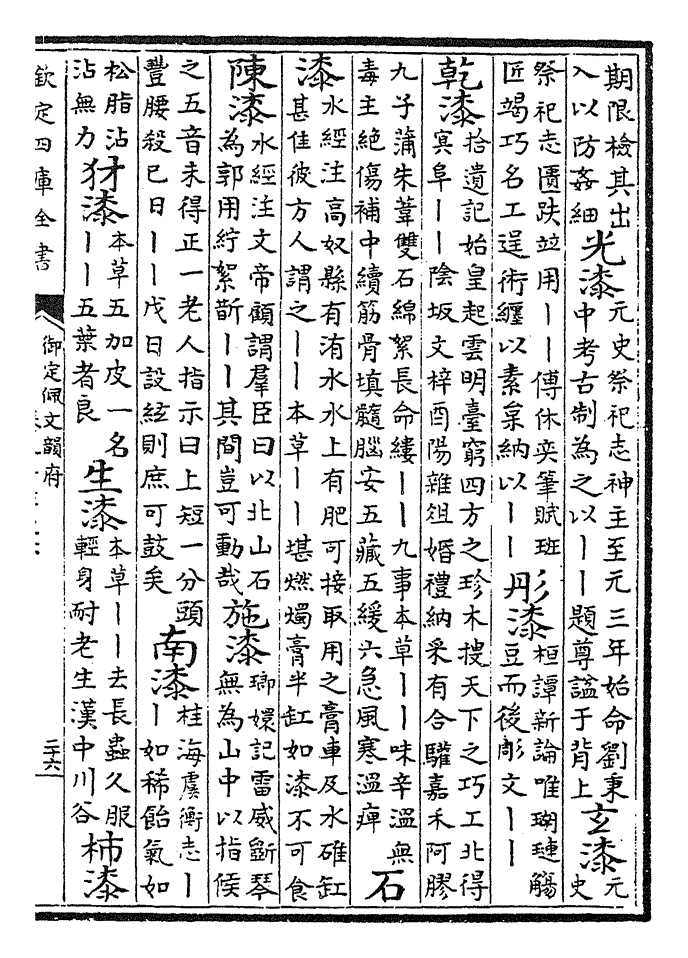 期限檢其出
入以防姦細
光漆
元史祭祀志神主至元三年始命劉秉
中考古制為之以丨丨題尊謚于背上
玄漆
元
史
祭祀志匱趺竝用丨丨傅休奕筆賦班
匠竭巧名工逞術纏以素枲納以丨丨
彤漆
桓譚新論唯瑚璉觴
豆而後彫文丨丨
乾漆
拾遺記始皇起雲明臺窮四方之珍木搜天下之巧工北得
冥阜丨丨陰坂文梓酉陽雜俎婚禮納采有合驩嘉禾阿膠
九子蒲朱葦雙石綿絮長命縷丨丨九事本草丨丨味辛溫無
毒主絶傷補中續筋骨填髓腦安五藏五緩六急風寒溫痺
石
漆
水經注高奴縣有洧水水上有肥可接取用之膏車及水碓缸
甚佳彼方人謂之丨丨本草丨丨堪燃燭膏半缸如漆不可食
陳漆
水經注文帝顧謂羣臣曰以北山石
為郭用紵絮斮丨丨其間豈可動哉
施漆
瑯嬛記雷威斲琴
無為山中以指候
之五音未得正一老人指示曰上短一分頭
豐腰殺已日丨丨戊日設絃則庶可鼓矣
南漆
桂海虞衡志丨
丨如稀飴氣如
松脂沾
沾無力
犲漆
本草五加皮一名
丨丨五葉者良
生漆
本草丨丨去長蟲久服
輕身耐老生漢中川谷
柿漆
欽定四庫全書
御定佩文韻府